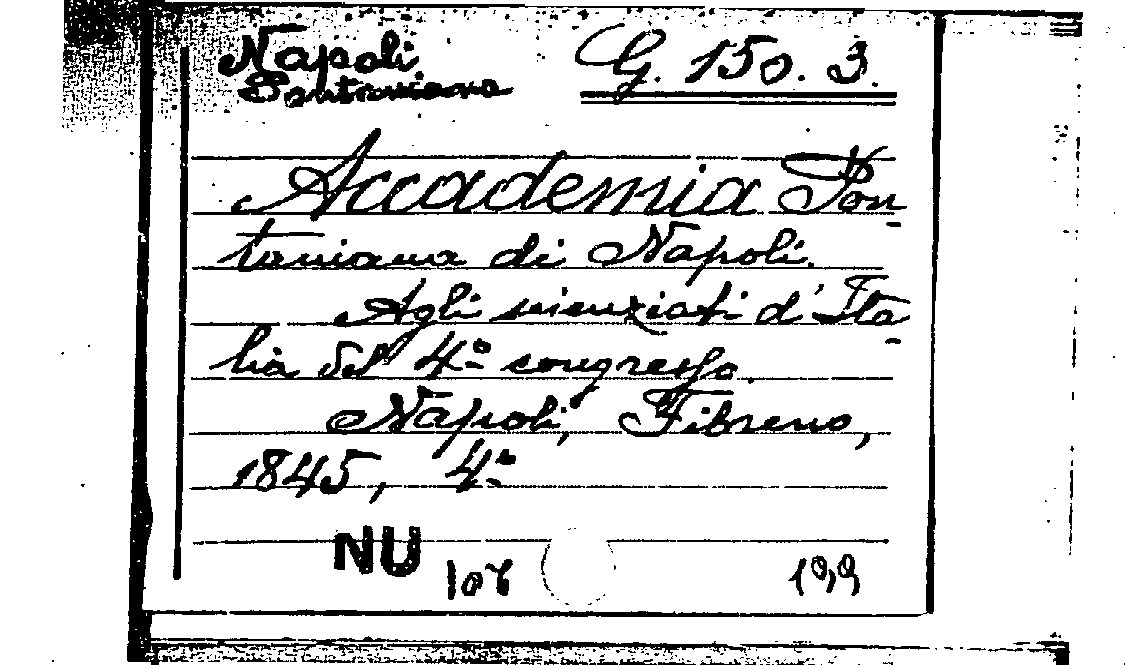 Napoli G. 150. 3.
Pontaniana
Accademia Pon-
taniana di Napoli.
Agli scienziati d'Ita-
lia del 4º congresso.
Napoli, Fibreno,
1845, 4º
NU 107 199